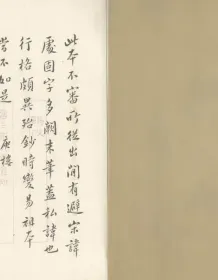 此本不審所從出間有避宗諱
處因字多闕末筆蓋私諱也
行格頗異殆鈔時變易祖本
當不如是 康樓